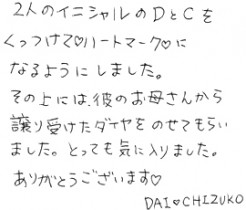 2人のイニシャルのDとCを
くっつけて♡ハートマーク♡に
なるようにしました。
その上には、彼のお母さんから
譲り受けたダイヤをのせてもらい
ました。とっても気に入りました。
ありがとうございます♡
DAI♡CHIZUKO